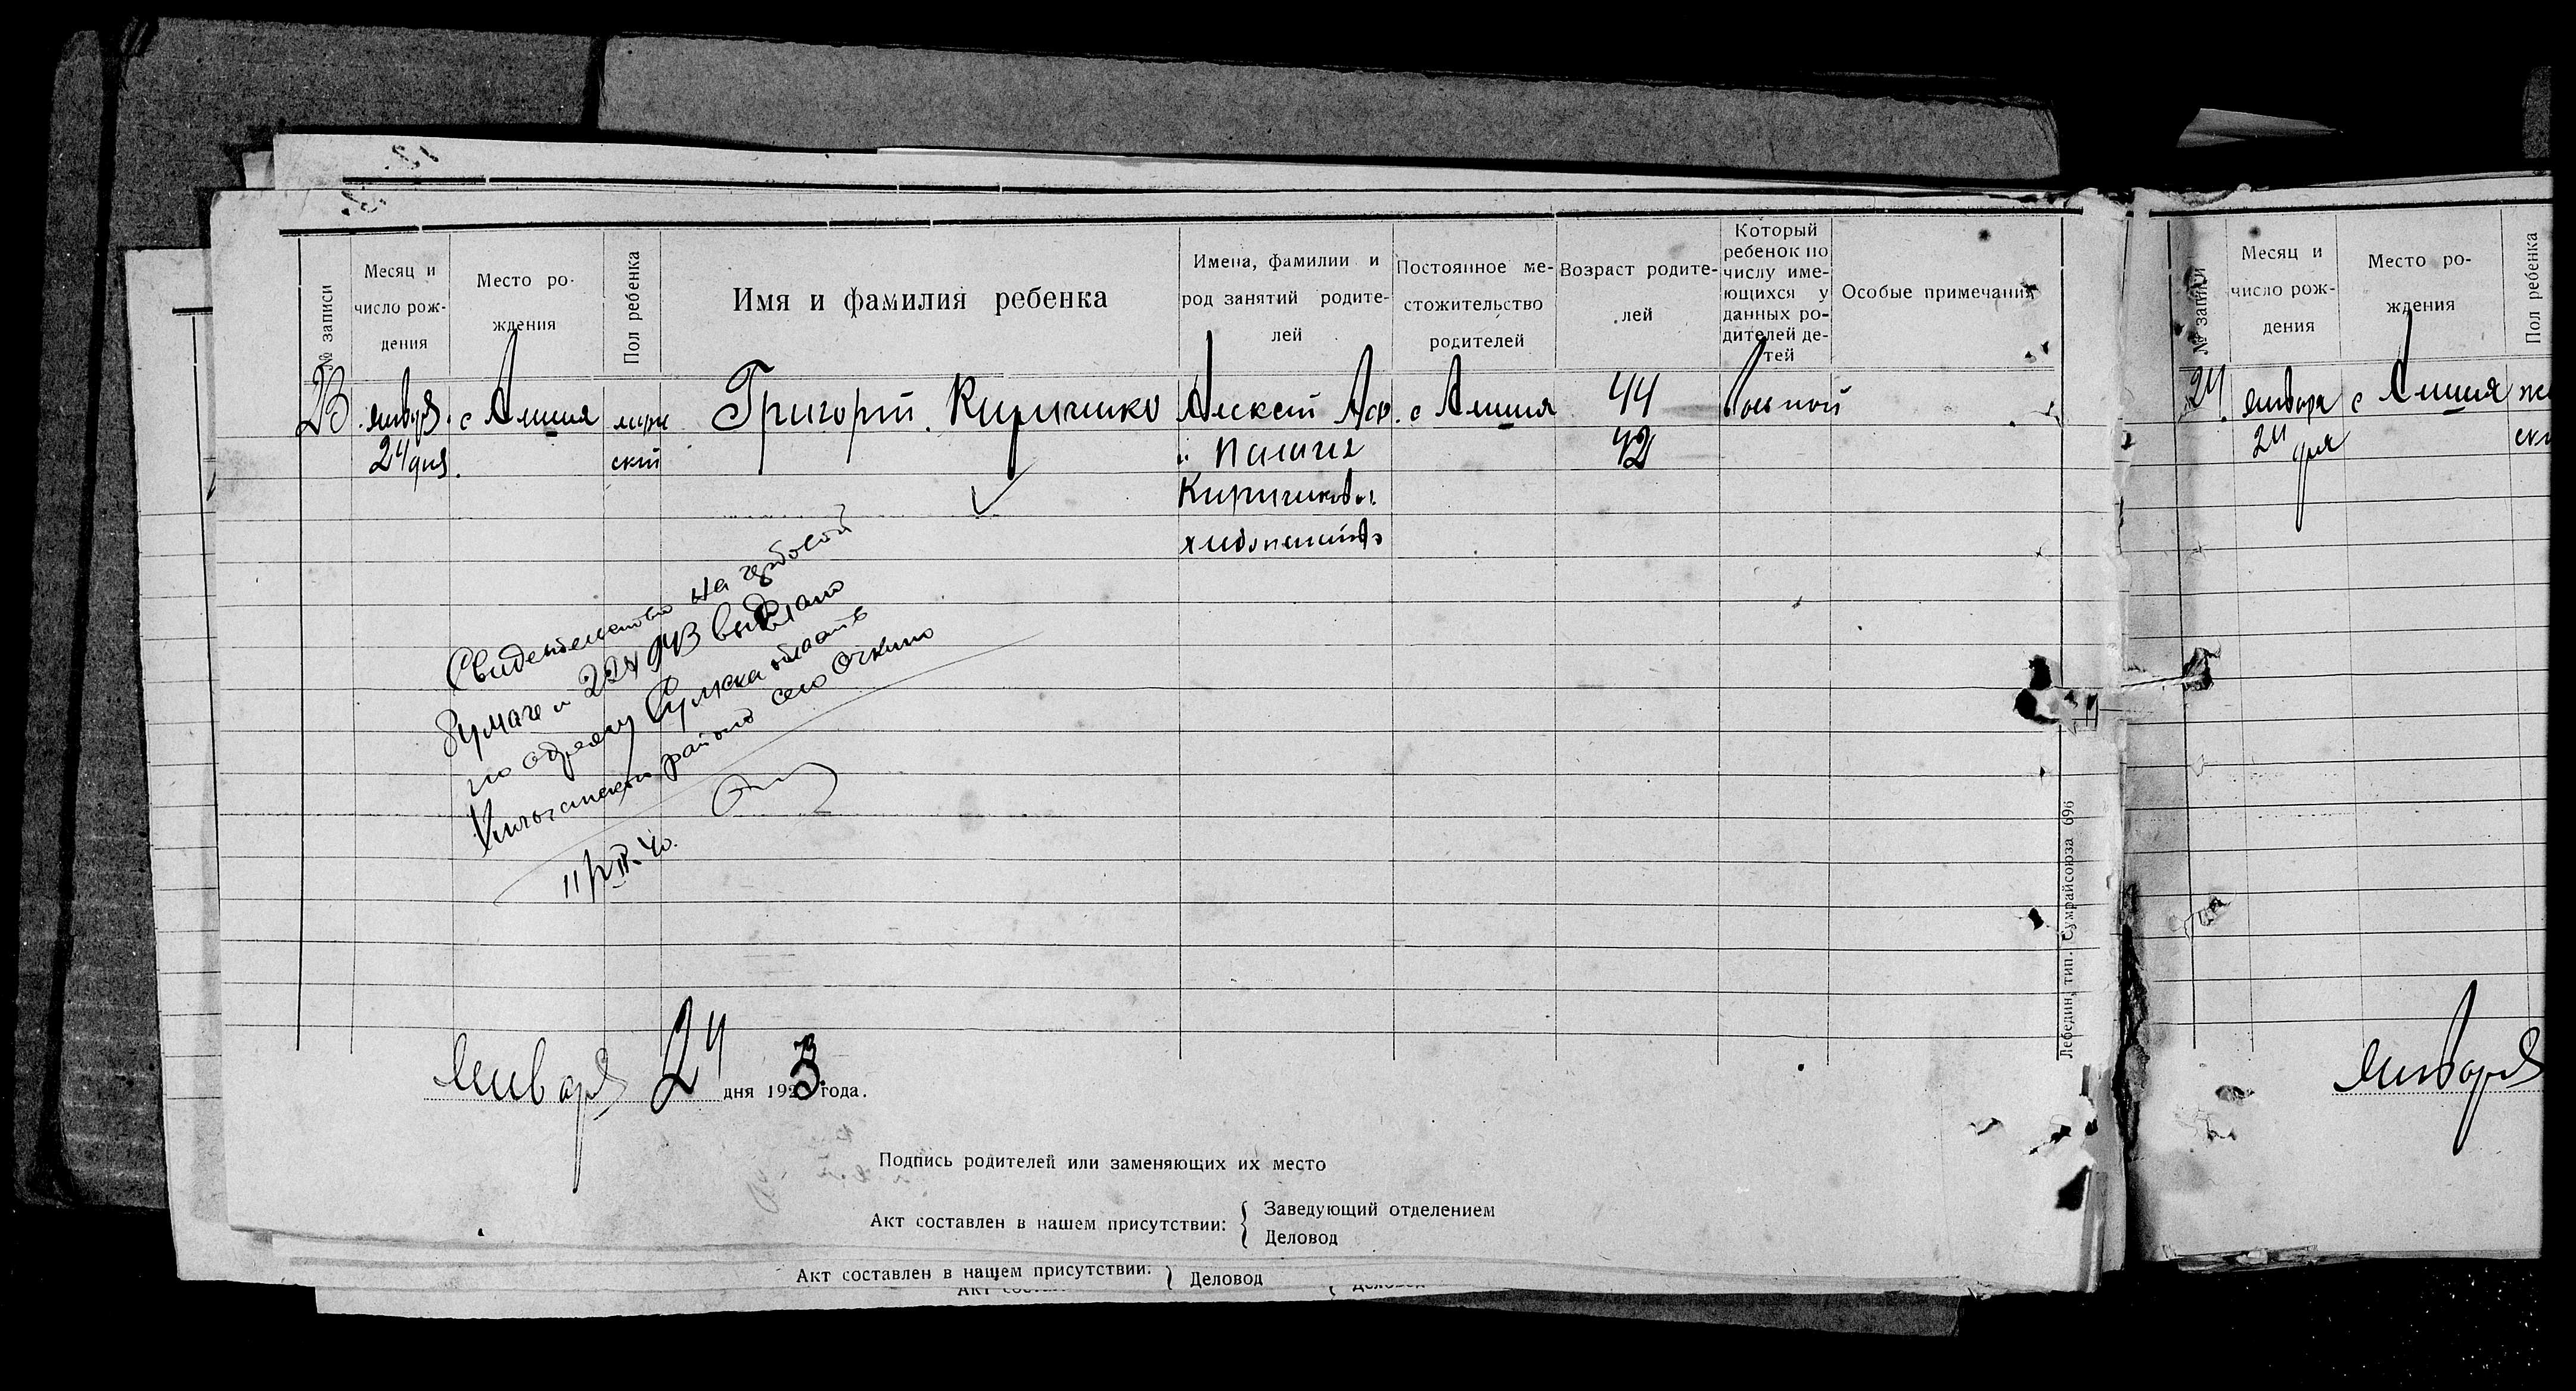 № записи
Месяц и
число рож-
дения
Место ро-
ждения
Пол ребенка
Имя и фамилия ребенка
Имена, фамилии и
род занятий родите-
лей
Постоянное ме-
стожительство
родителей
Возраст родите-
лей
Который
ребенок по
числу име-
ющихся у
данных ро-
дителей де-
тей
Особые примечания
23 января с Григорий Кириченко Алексей с 44
24 дня ский 42
Кириченковы
хлебопашество
Свидетельство на гербовой
бумаге выдано
по адресу Сумска область
района село Очкино
11/VII 40.
января 24 дня 1923 года.
Подпись родителей или заменяющих их место
Акт составлен в нашем присутствии: { Заведующий отделением
Деловод
Акт составлен в нашем присутствии: } Деловод
Лебедин, тип. Сумрайсоюза 696
№ записи
Месяц и
число рож-
дения
Место ро-
ждения
Пол ребенка
24 января с
24 дня
января